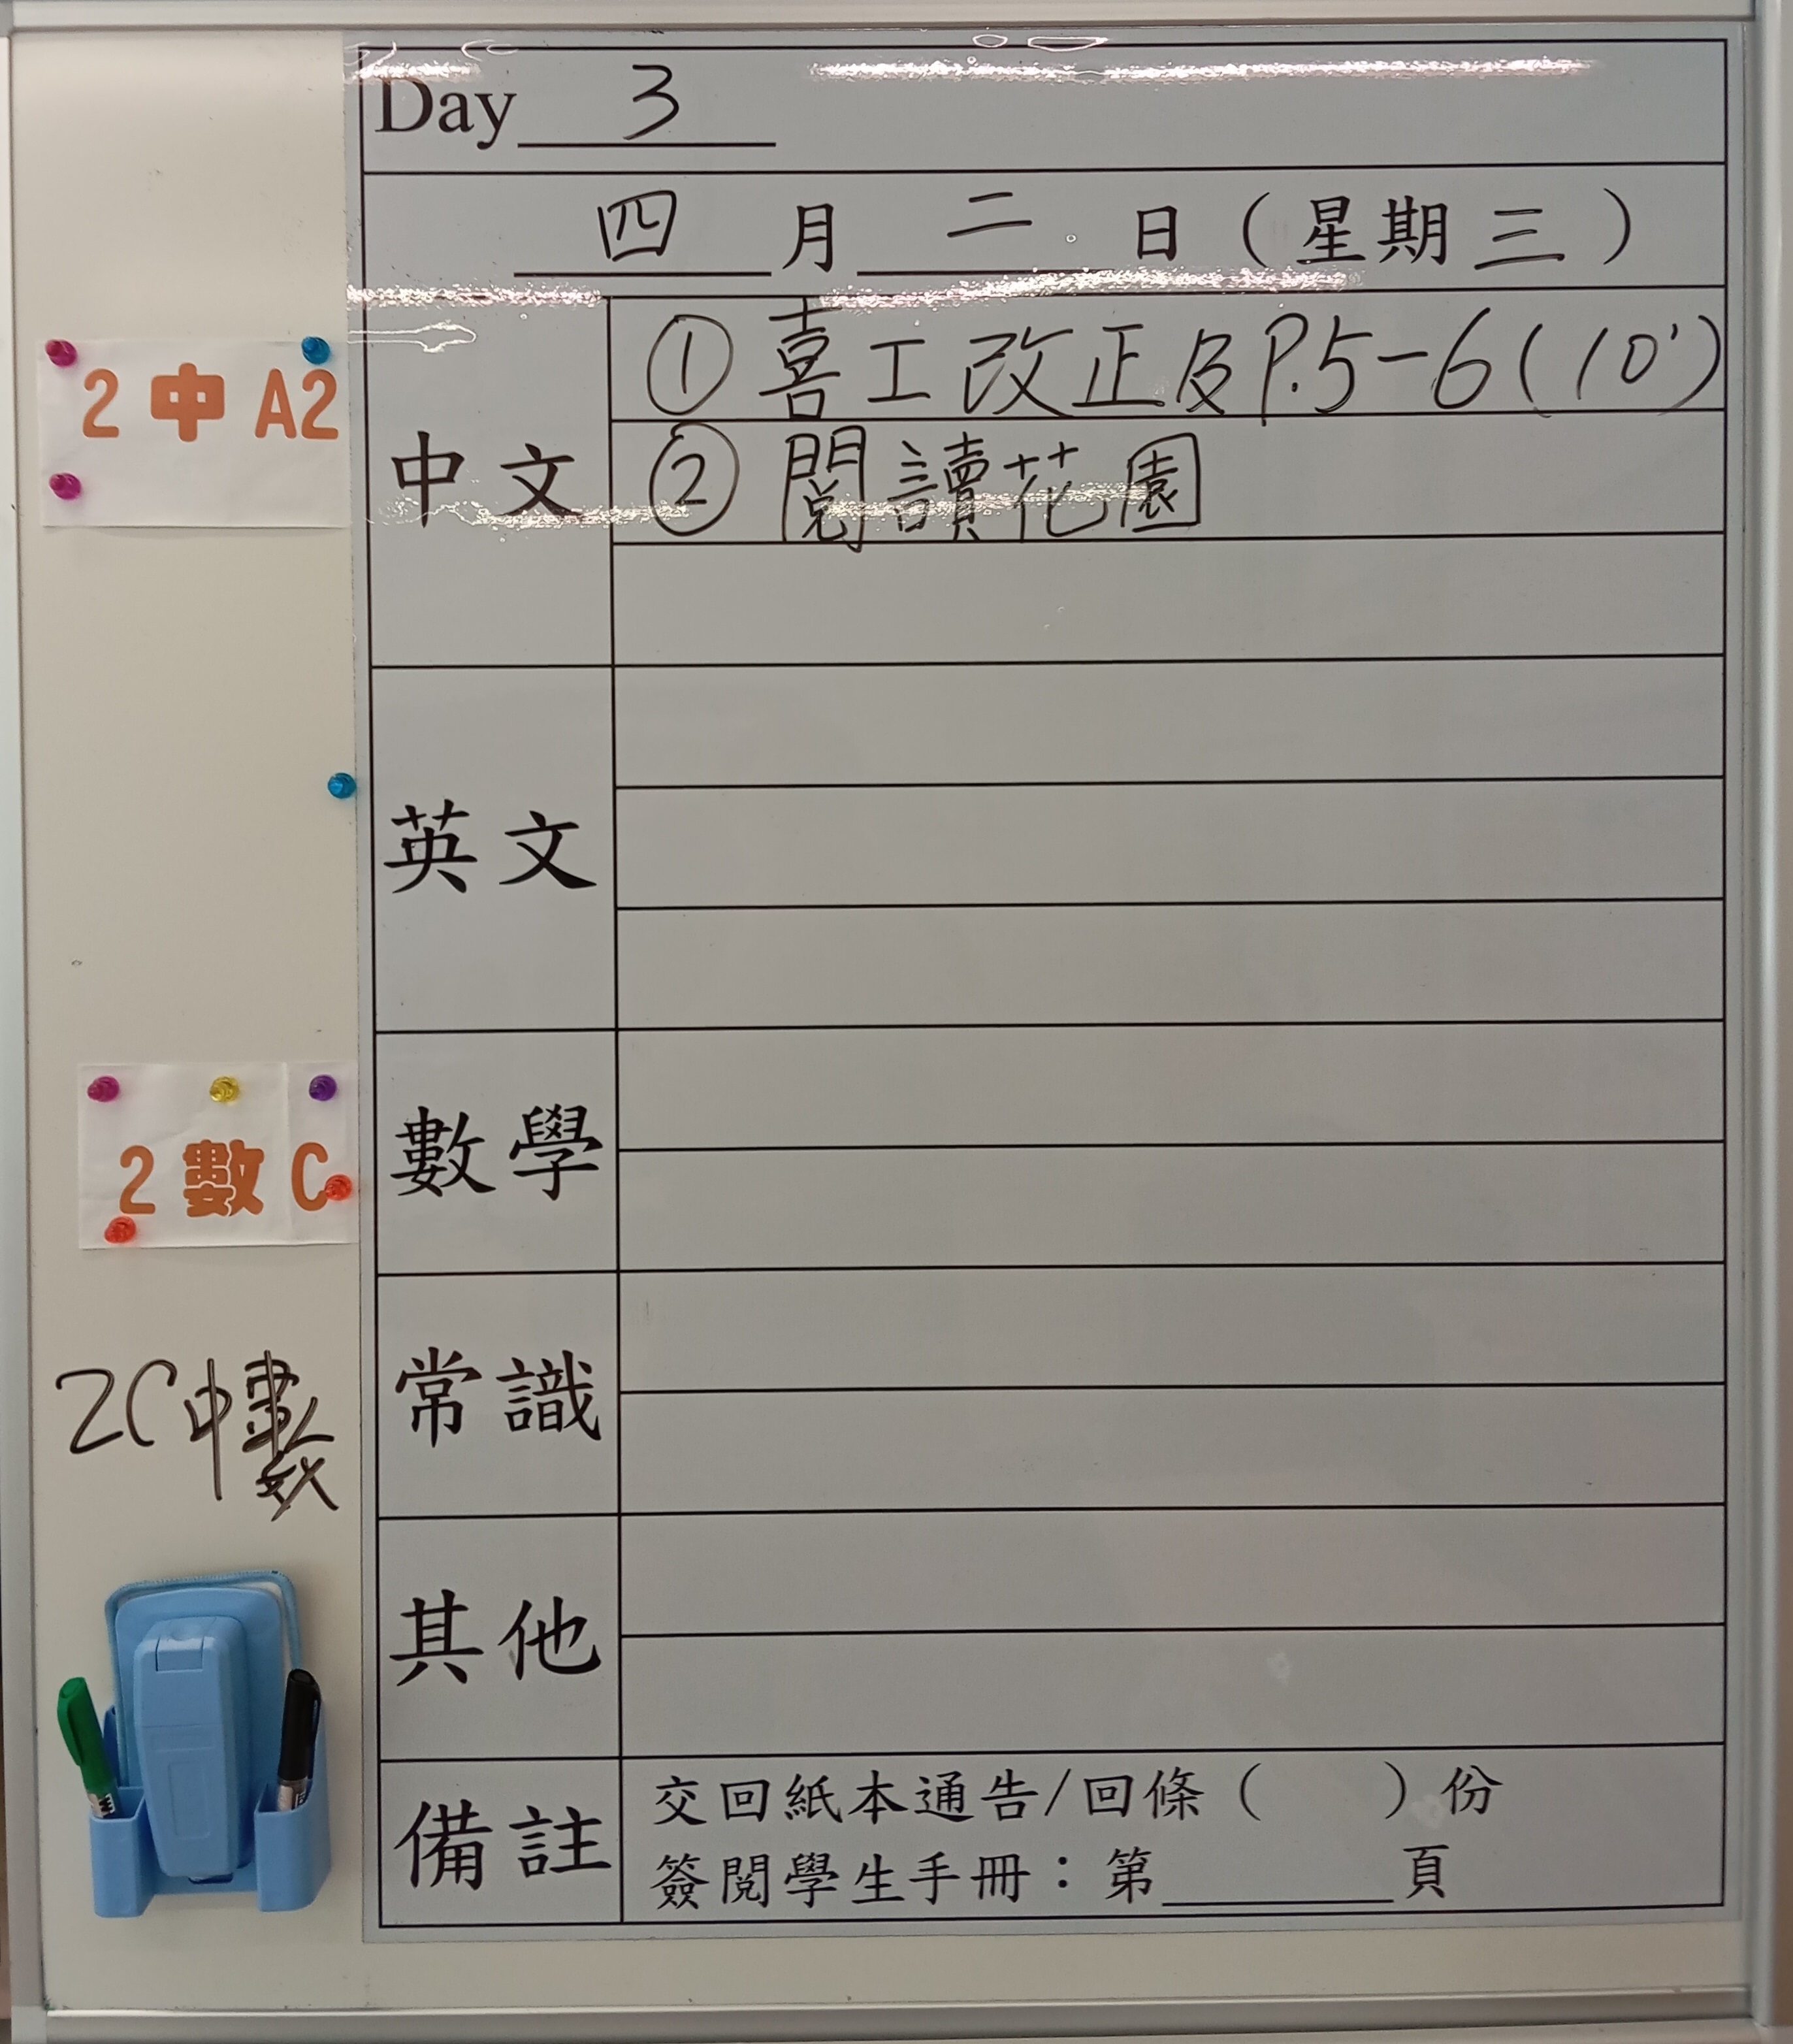 Day 3
四 月 二 日（星期三）
2 中 A2
中文
① 喜工改正及P.5-6(10')
② 閱讀花園
英文
2 數 C
數學
2C中數
常識
其他
備註
交回紙本通告/回條（　　）份
簽閱學生手冊：第________頁